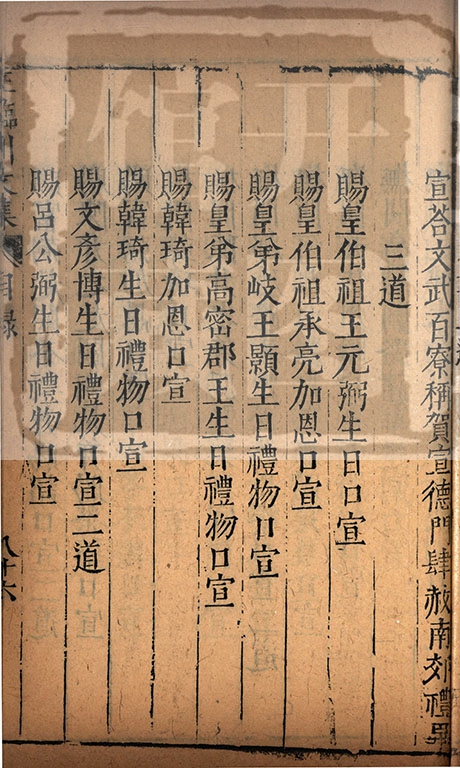 宣荅文武百寮稱賀宣德門肆赦南郊禮畢
三道
賜皇伯祖王元弼生日口宣
賜皇伯祖承亮加恩口宣
賜皇弟岐王顥生日禮物口宣
賜皇弟高密郡王生日禮物口宣
賜韓琦加恩口宣
賜韓琦生日禮物口宣
賜文彥博生日禮物口宣二道
賜呂公弼生日禮物口宣
王臨川文集 目錄 八十六